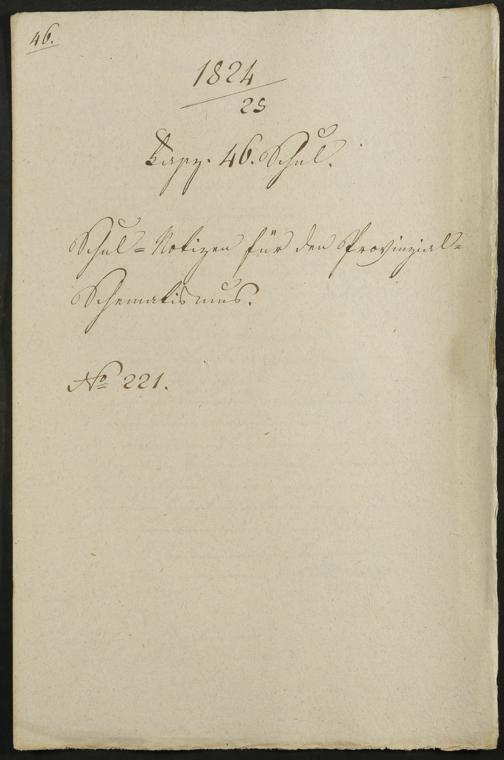 46.
1824
25
46. Schul.
Schul=Notizen für den Provinzial=
Schematismus.
No 221.